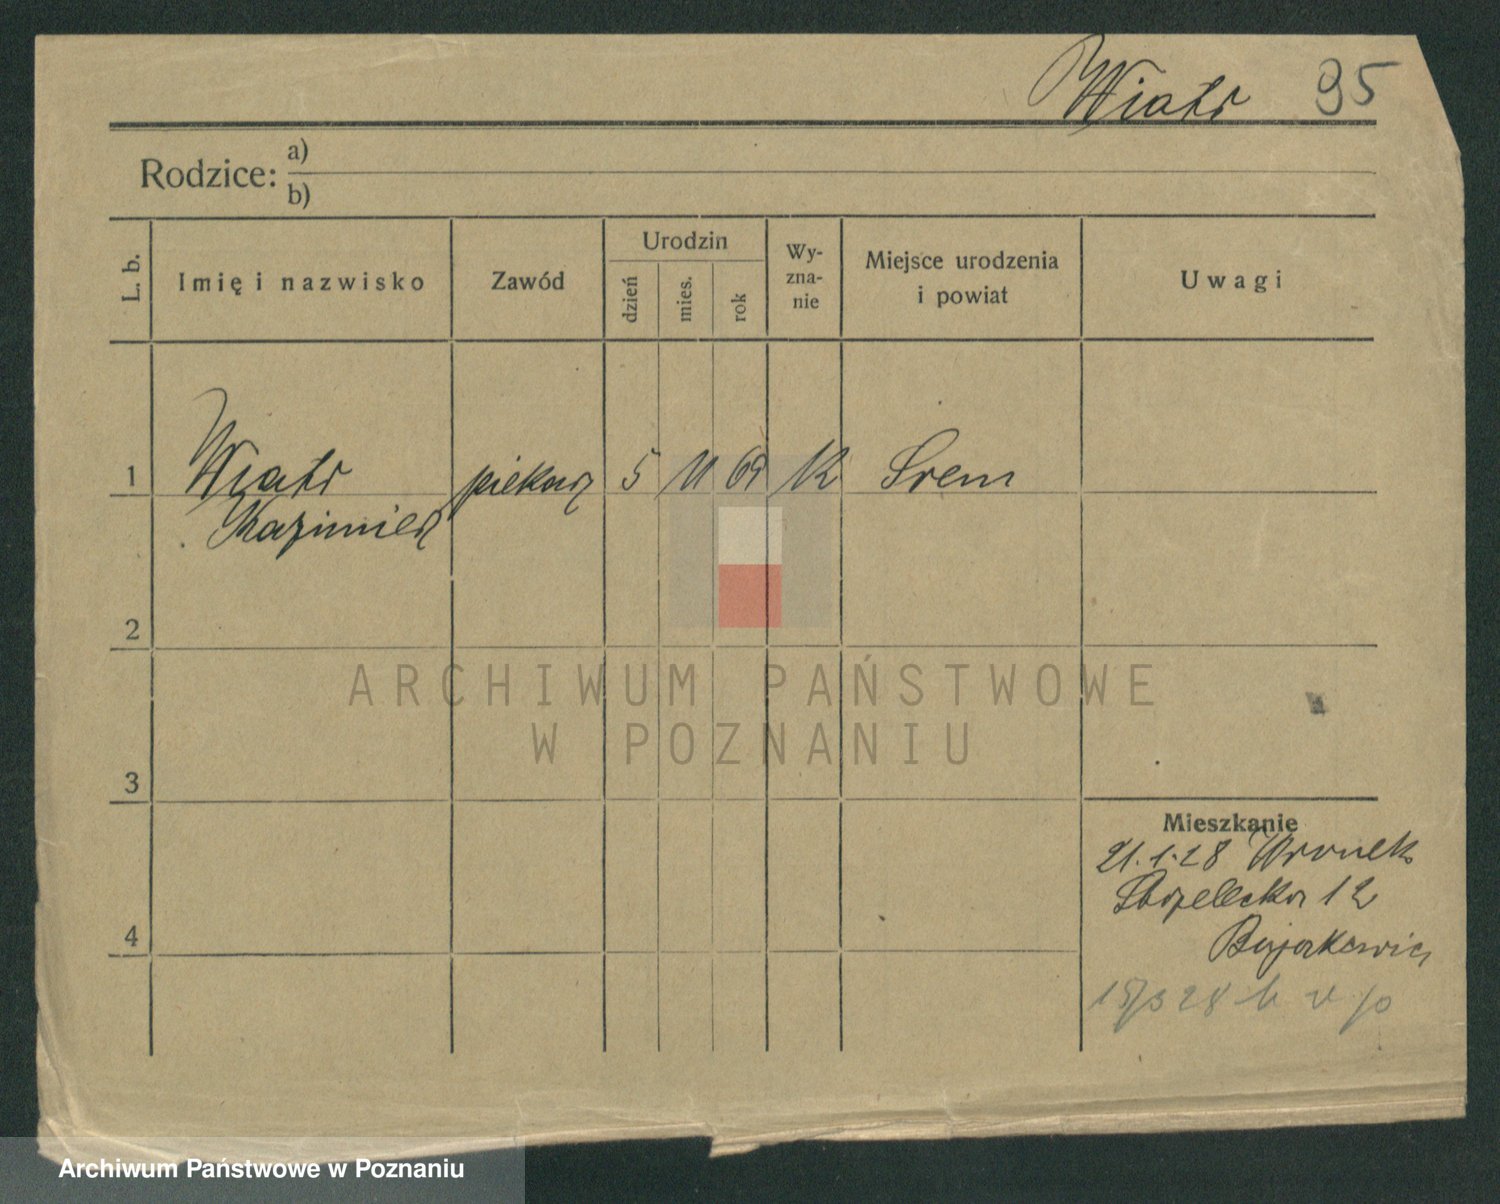 Wiatr 95
Rodzice: a)
b)
L. b. Imię i nazwisko Zawód Urodzin dzień mies. rok Wy-zna-nie Miejsce urodzenia i powiat Uwagi
1 Wiatr piekarz 5 11 69 K Srem
Kazimierz
2
ARCHIWUM PAŃSTWOWE
W POZNANIU
3
Mieszkanie
21.1.28 Wronek
Strzelecka 12
4
15/3 28
Archiwum Państwowe w Poznaniu